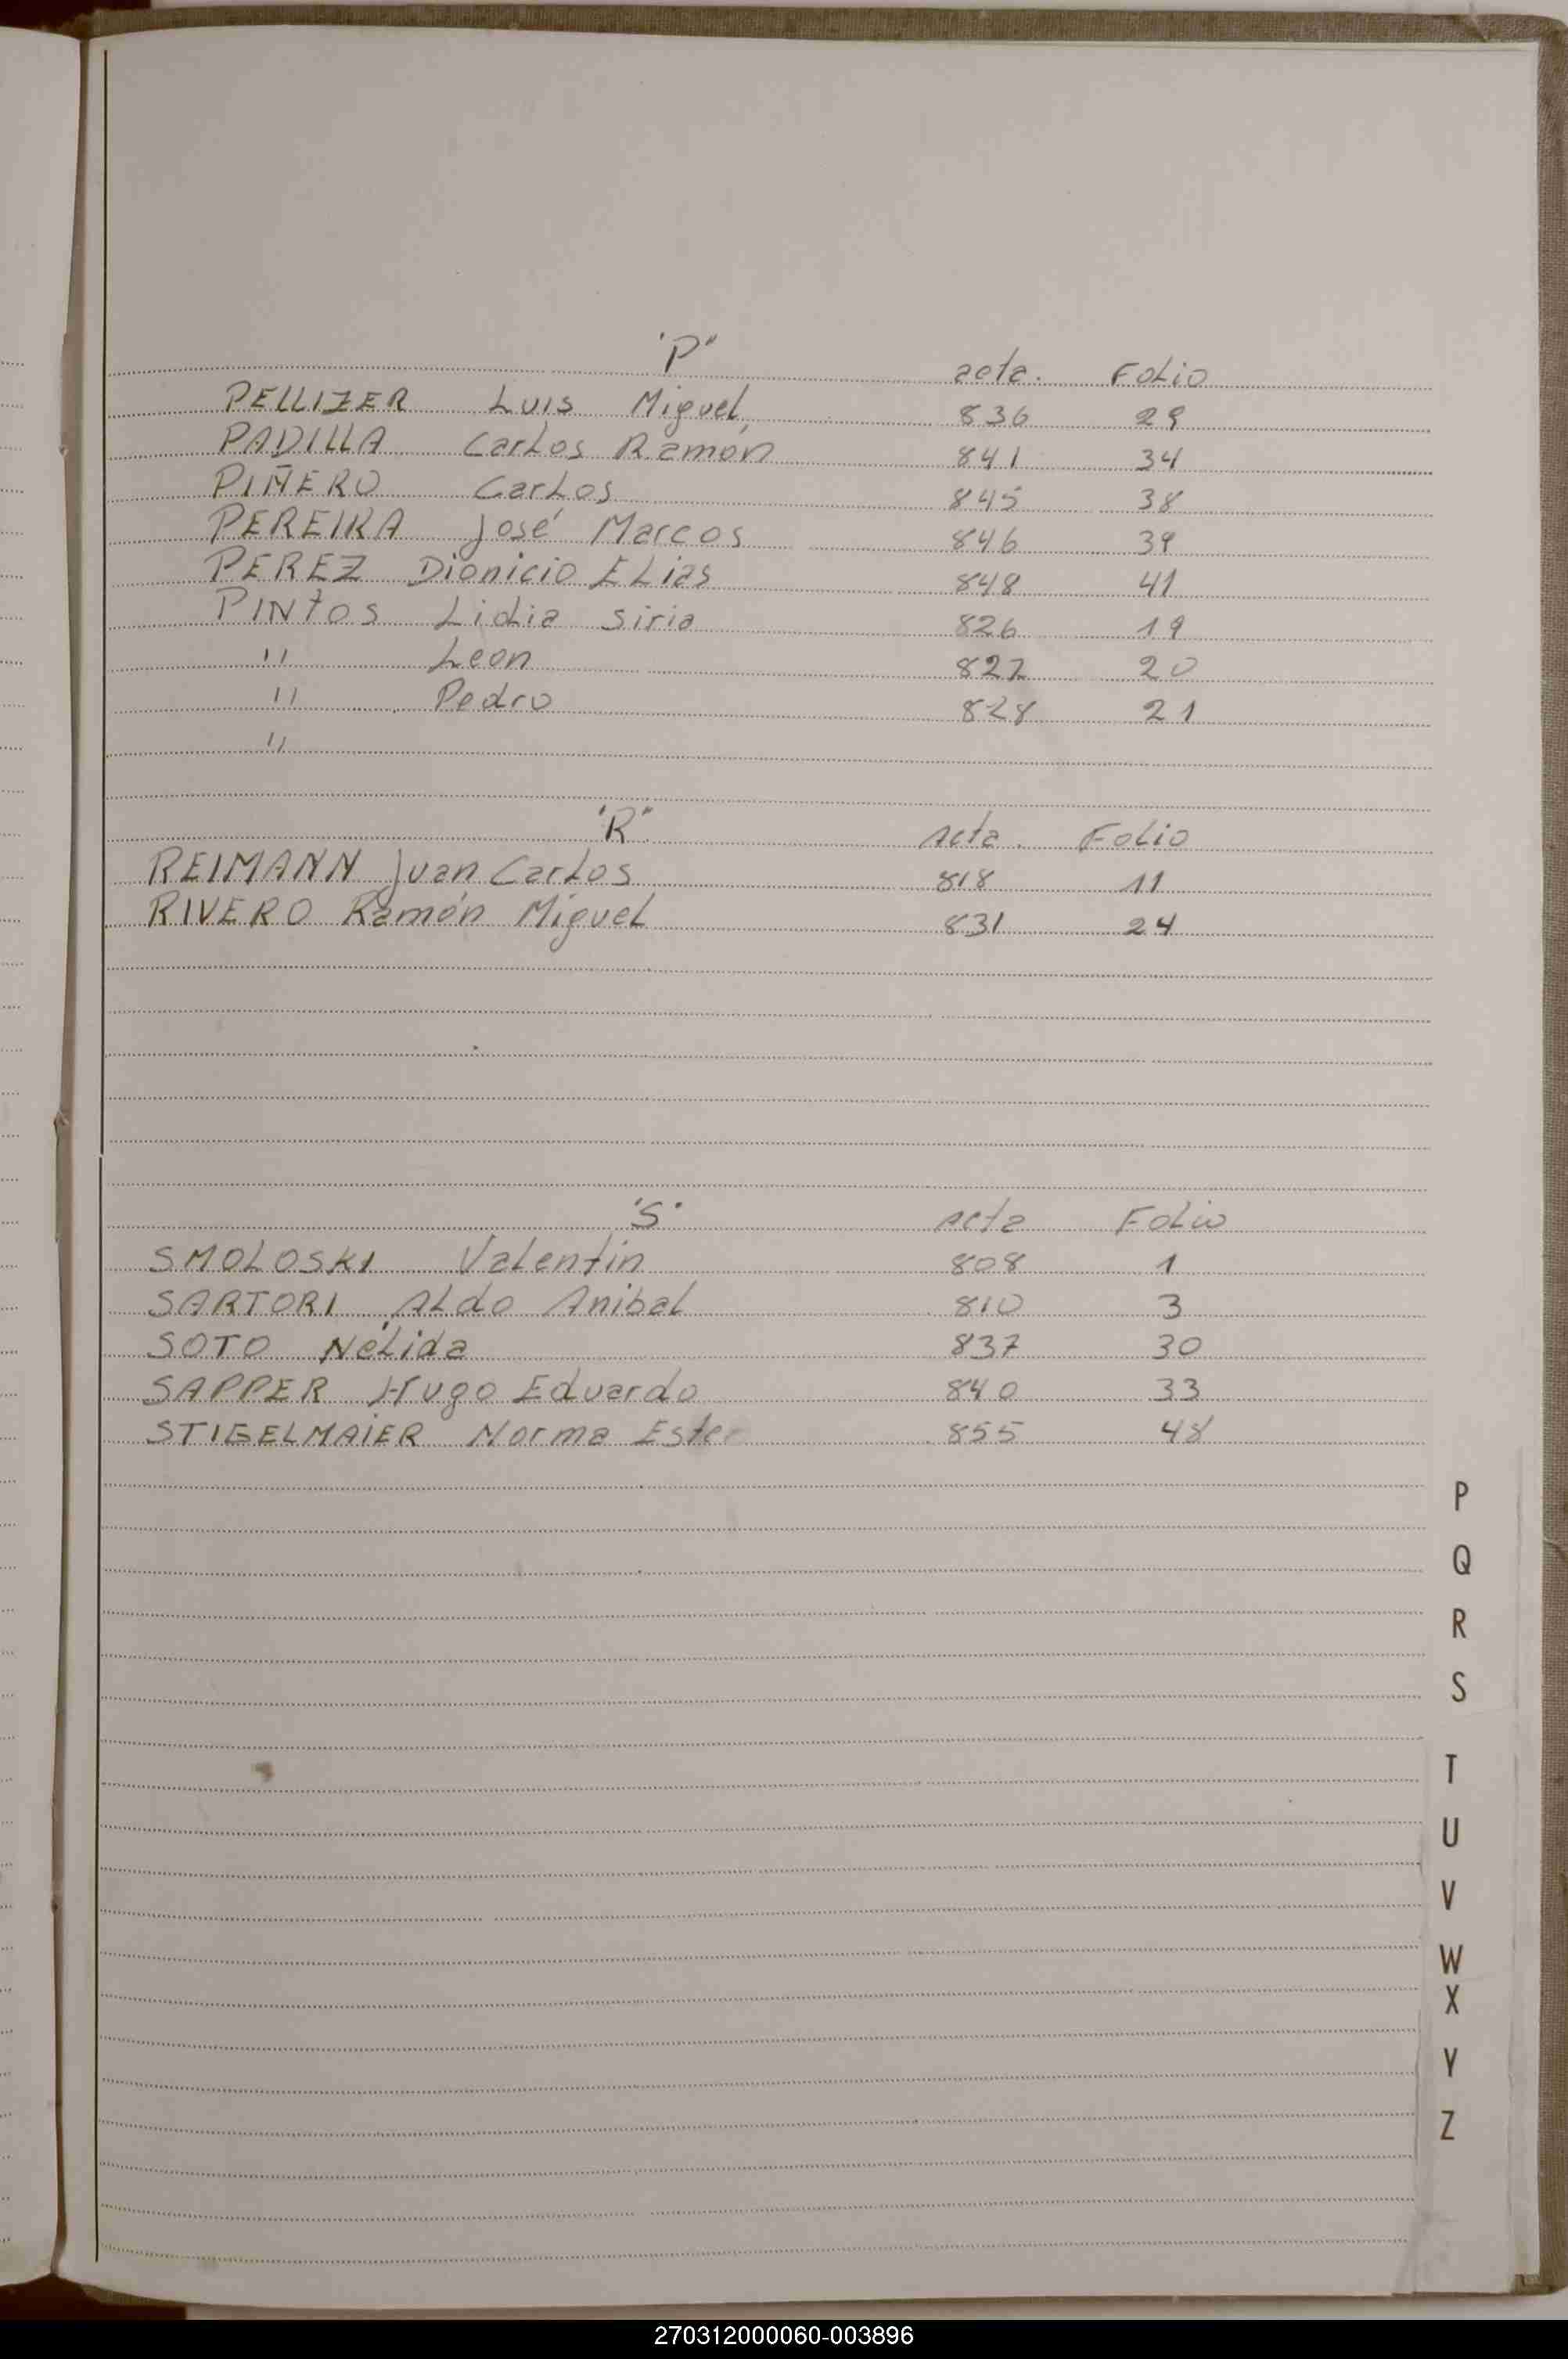 "P" acta. Folio
PELLIZER Luis Miguel 836 29
PADILLA Carlos Ramón 841 34
PIÑERO Carlos 845 38
PEREIRA José Marcos 846 39
PEREZ Dionicio Elias 848 41
PINTOS Lidia Siria 826 19
" Leon 827 20
" Pedro 828 21
"
"R" Acta. Folio
REIMANN Juan Carlos 818 11
RIVERO Ramón Miguel 831 24
"S" Acta Folio
SMOLOSKI Valentin 808 1
SARTORI Aldo Anibal 810 3
SOTO Nélida 837 30
SAPPER Hugo Eduardo 840 33
STIGELMAIER Norma Ester 855 48
P
Q
R
S
T
U
V
W
X
Y
Z
270312000060-003896